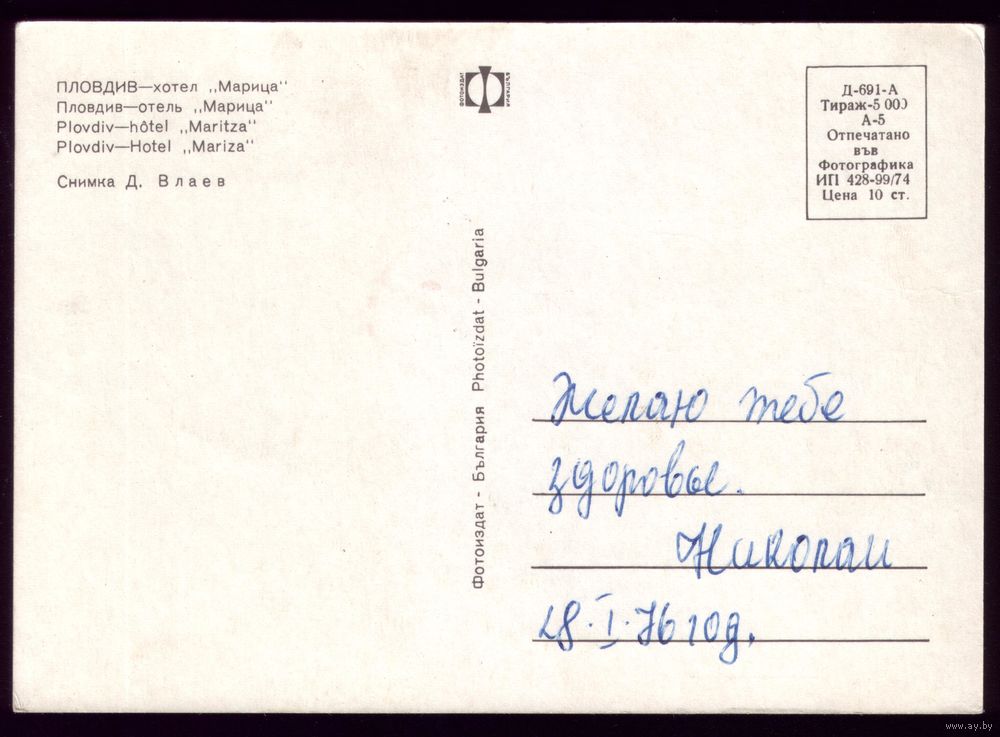 ПЛОВДИВ—хотел „Марица"
Пловдив—отель „Марица"
Plovdiv—hôtel „Maritza"
Plovdiv—Hotel „Mariza"
Снимка Д. Влаев
ФОТОИЗДАТ
БЪЛГАРИЯ
Д-691-А
Тираж-5 000
А-5
Отпечатано
във
Фотографика
ИП 428-99/74
Цена 10 ст.
Фотоиздат - България Photoïzdat - Bulgaria
Желаю тебе
здоровье.
Николаи
28.I.76 год.
www.ay.by